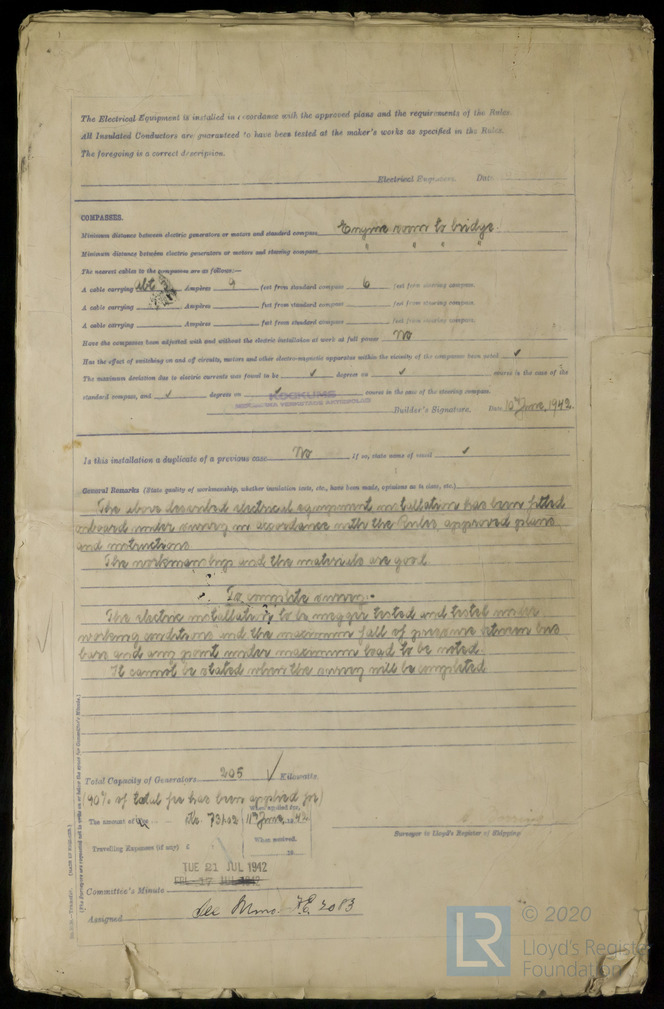 The Electrical Equipment is installed in accordance with the approved plans and the requirements of the Rules.
All Insulated Conductors are guaranteed to have been tested at the maker's works as specified in the Rules.
The foregoing is a correct description.
Electrical Engineers. Date
COMPASSES.
Minimum distance between electric generators or motors and standard compass Engine room to bridge.
Minimum distance between electric generators or motors and steering compass " " " "
The nearest cables to the compasses are as follows:—
A cable carrying Ampères 9 feet from standard compass 6 feet from steering compass.
A cable carrying Ampères feet from standard compass feet from steering compass.
A cable carrying Ampères feet from standard compass feet from steering compass.
Have the compasses been adjusted with and without the electric installation at work at full power No
Has the effect of switching on and off circuits, motors and other electro-magnetic apparatus within the vicinity of the compasses been noted ✓
The maximum deviation due to electric currents was found to be ✓ degrees on ✓ course in the case of the
standard compass, and ✓ degrees on ✓ course in the case of the steering compass.
KOCKUMS
MEKANISKA VERKSTADS AKTIEBOLAG
Builder's Signature. Date 10th June, 1942.
Is this installation a duplicate of a previous case No If so, state name of vessel ✓
General Remarks (State quality of workmanship, whether insulation tests, etc., have been made, opinions as to class, etc.)
The above described electrical equipment installation has been fitted
onboard under survey in accordance with the Rules, approved plans
and instructions.
The workmanship and the materials are good.
To complete survey.
The electric installation to be megger tested and tested under
working conditions and the maximum fall of pressure between bus
bars and any point under maximum load to be noted.
It cannot be stated when the survey will be completed
Total Capacity of Generators 205 ✓ Kilowatts.
(90% of total fee has been applied for)
When applied for,
The amount of Fee .. Kr. 11th June, 1942
When received,
Travelling Expenses (if any) £ 19
Surveyor to Lloyd's Register of Shipping
TUE 21 JUL 1942
FRI. 17 JUL 1942
Committee's Minute
Assigned See F.E.
© 2020
LR
Lloyd's Register
Foundation